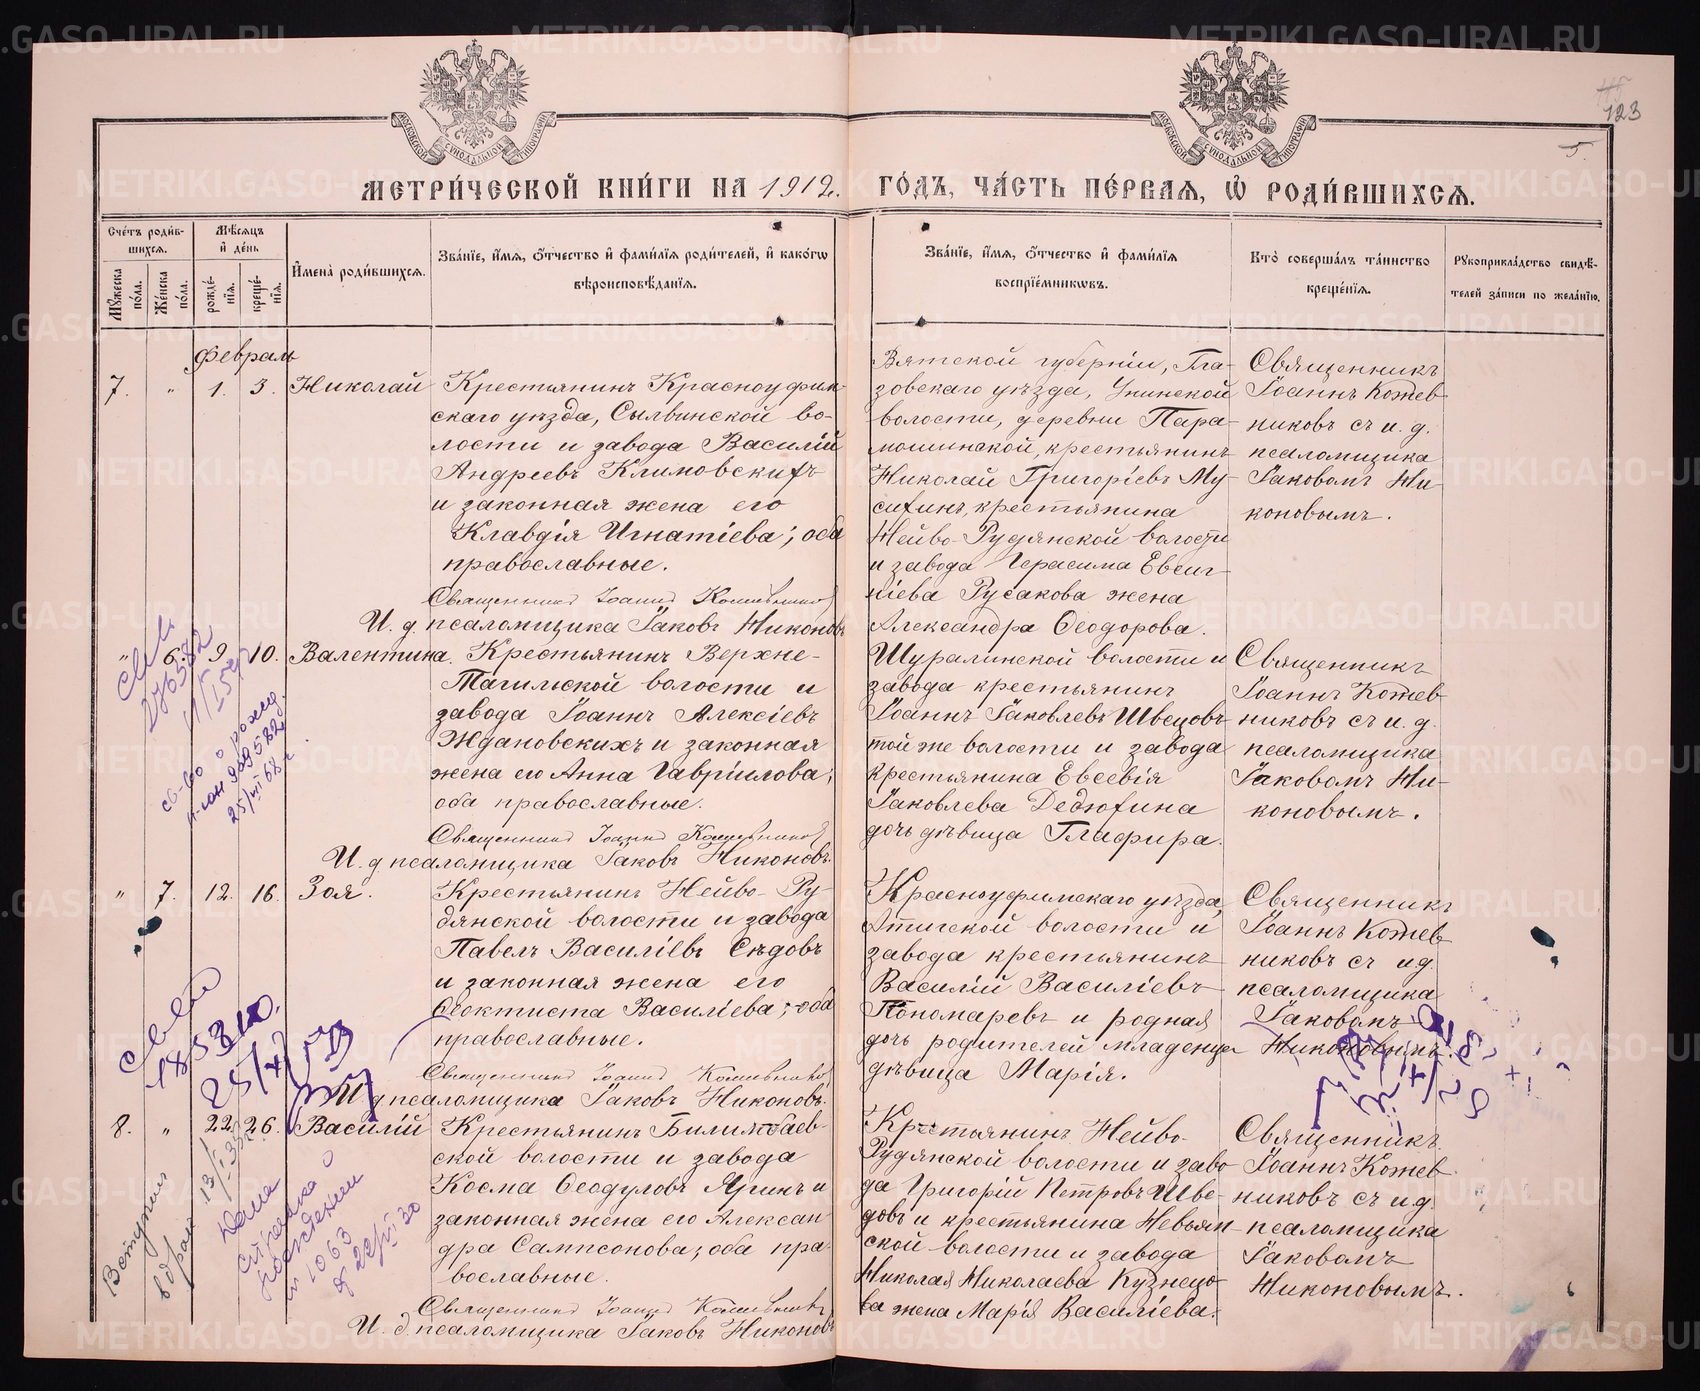 123
5.
МЕТРИ́ЧЕСКОЙ КНИ́ГИ НА 1912. ГО́ДЪ, ЧА́СТЬ ПЕ́РВАѦ, Ѽ РОДИ́ВШИХСѦ.
Сче́тъ роди́в-
шихсѧ.
Мѣ́сѧцъ
и҆ де́нь
И҆мена̀ роди́вшихсѧ.
Зва́нїе, и҆́мѧ, ѻ҆́тчество и҆ фами́лїѧ роди́телей, и҆ како́гѡ
вѣроисповѣ́данїѧ.
Зва́нїе, и҆́мѧ, ѻ҆́тчество и҆ фами́лїѧ
воспрїе́мникѡвъ.
Кто̀ соверша́лъ та́инство
креще́нїѧ.
Рꙋкоприкла́дство свидѣ́-
телей за́писи по жела́нїю.
Мꙋ́жеска
по́ла.
Же́нска
по́ла.
рожде́-
нїѧ.
креще́-
нїѧ.
Февраль
7. " 1. 3. Николай
Крестьянинъ Красноуфим-
скаго уѣзда, Сылвинской во-
лости и завода Василій
Андреевъ Климовскихъ
и законная жена его
Клавдія Игнатіева; оба
православные.
Священникъ Іоаннъ Кожевниковъ
И. д. псаломщика Іаковъ Никоновъ
Вятской губерніи, Гла-
зовскаго уѣзда, Унинской
волости, деревни Пара-
мошинской, крестьянинъ
Николай Григоріевъ Му-
сихинъ, крестьянина
Нейво-Рудянской волости
и завода Герасима Евсиг-
ніева Русакова жена
Александра Ѳеодорова.
Священникъ
Іоаннъ Кожев-
никовъ съ и. д.
псаломщика
Іаковомъ Ни-
коновымъ.
" 6. 9. 10. Валентина.
Крестьянинъ Верхне-
Тагильской волости и
завода Іоаннъ Алексіевъ
Ждановскихъ и законная
жена его Анна Гавріилова;
оба православные.
Священникъ Іоаннъ Кожевниковъ
И. д. псаломщика Іаковъ Никоновъ.
Шуралинской волости и
завода крестьянинъ
Іоаннъ Іаковлевъ Швецовъ
той же волости и завода
крестьянина Евсевія
Іаковлева Дедюхина
дочь дѣвица Глафира.
Священникъ
Іоаннъ Кожев-
никовъ съ и. д.
псаломщика
Іаковомъ Ни-
коновымъ.
" 7. 12. 16. Зоя.
Крестьянинъ Нейво-Ру-
дянской волости и завода
Павелъ Василіевъ Сѣдовъ
и законная жена его
Ѳеоктиста Василіева; оба
православные.
Священникъ Іоаннъ Кожевниковъ
И. д. псаломщика Іаковъ Никоновъ.
Красноуфимскаго уѣзда,
Атигской волости и
завода крестьянинъ
Василій Василіевъ
Пономаревъ и родная
дочь родителей младенца
дѣвица Марія.
Священникъ
Іоаннъ Кожев-
никовъ съ и.д.
псаломщика
Іаковомъ
Никоновымъ.
8. " 22. 26. Василій
Крестьянинъ Билимбаев-
ской волости и завода
Косма Ѳеодуловъ Яринъ и
законная жена его Алексан-
дра Сампсонова; оба пра-
вославные.
Священникъ Іоаннъ Кожевниковъ
И. д. псаломщика Іаковъ Никоновъ
Крестьянинъ Нейво-
Рудянской волости и заво-
да Григорій Петровъ Шве-
довъ и крестьянина Невьян-
ской волости и завода
Николая Николаева Кузнецо-
ва жена Марія Василіева.
Священникъ
Іоаннъ Кожев-
никовъ съ и.д.
псаломщика
Іаковомъ
Никоновымъ.
св-во о рожд.
Вступил
в брак
Дана
справка о
рождении
№ 1063